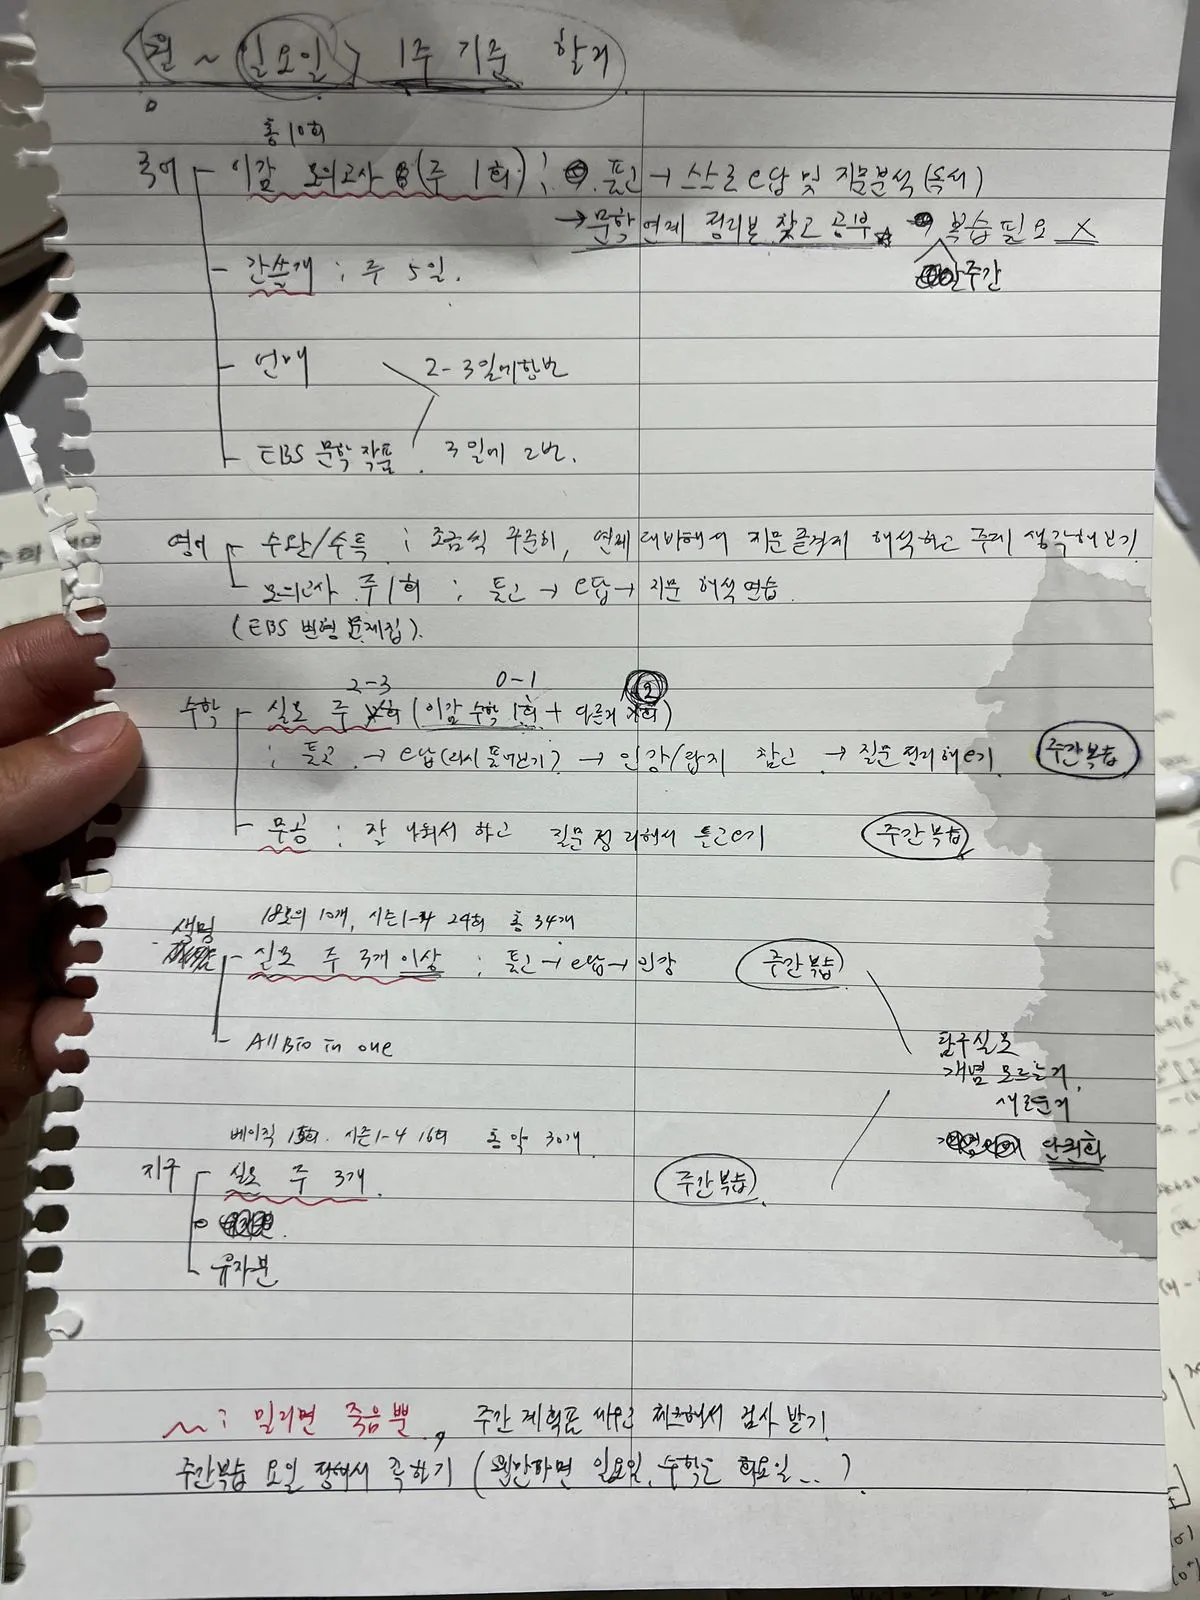 <월 ~ 일요일> 1주 기준 할거
총 10회
국어 - 이감 모의고사 (주 1회) ; 풀고 → 스스로 오답 및 지문분석 (독서)
→ 문학 연계 정리본 찾고 공부 ☆ 복습 필요 X
주간
- 간쓸개 ; 주 5일.
- 언매 2-3일에 한번
- EBS 문학 작품 . 3일에 2번.
영어 - 수완/수특 ; 조금씩 꾸준히, 연계 대비해서 지문 끝까지 해석하고 주제 생각해보기
모의고사 주 1회 ; 풀고 → 오답 → 지문 해석 연습
(EBS 변형 문제집).
2-3 0-1 2
수학 - 실모 주 회 (이감 수학 1회 + 다른거 회)
; 풀고 → 오답 (다시 풀어보기) → 인강/답지 참고 → 질문 정리해오기. 주간복습
- 무공 : 잘 나눠서 하고 질문 정리해서 들고오기 주간복습
10개, 시즌1-4 24회 총 34개
생명 - 실모 주 3개 이상 ; 풀고 → 오답 → 인강 주간복습
- All Bio in one
탐구실모
개념 모르는거,
새로운거
단권화
베이직 15회. 시즌1-4 16회 총 약 30개
지구 - 실모 주 3개. 주간복습
- 유자분
~ ; 밀리면 죽음뿐, 주간 계획표 세우고 체크해서 검사 받기
주간복습 요일 정해서 꼭 하기 (웬만하면 일요일, 수학은 화요일...)